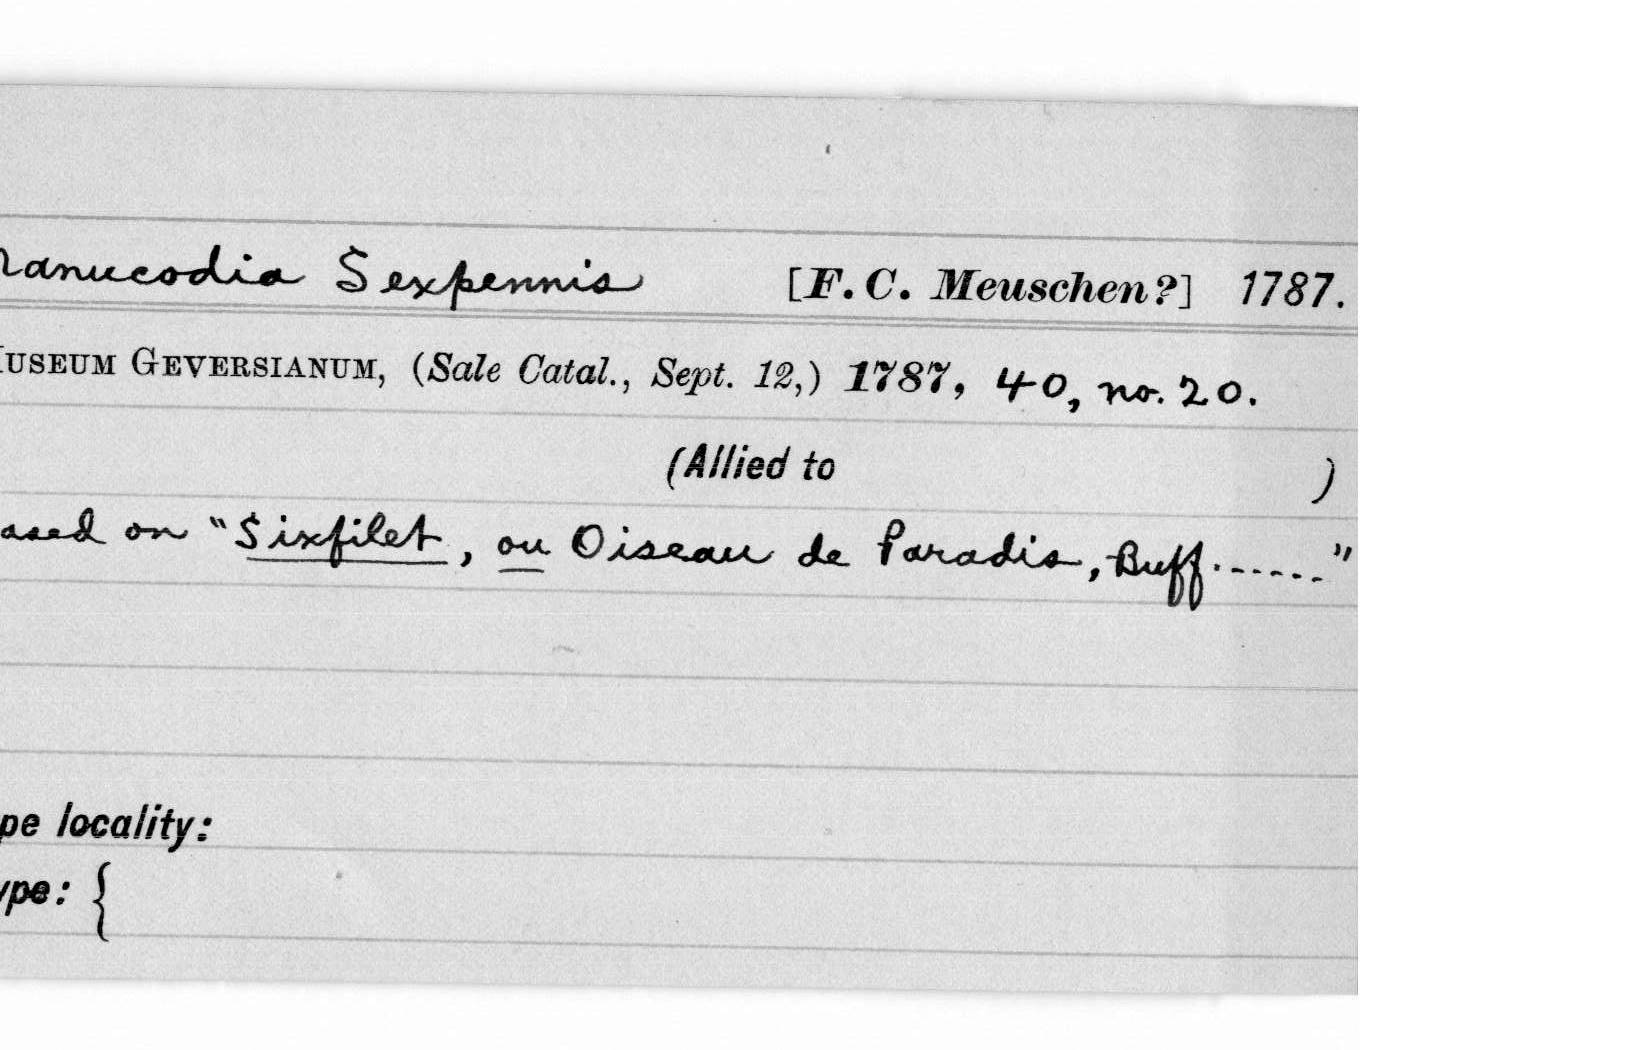 anucodia Sexpennis [F. C. Meuschen?] 1787.
USEUM GEVERSIANUM, (Sale Catal., Sept. 12,) 1787, 40, no. 20.
(Allied to )
ased on "Sixfilet, ou Oiseau de Paradis, Buff......."
pe locality:
ype: {